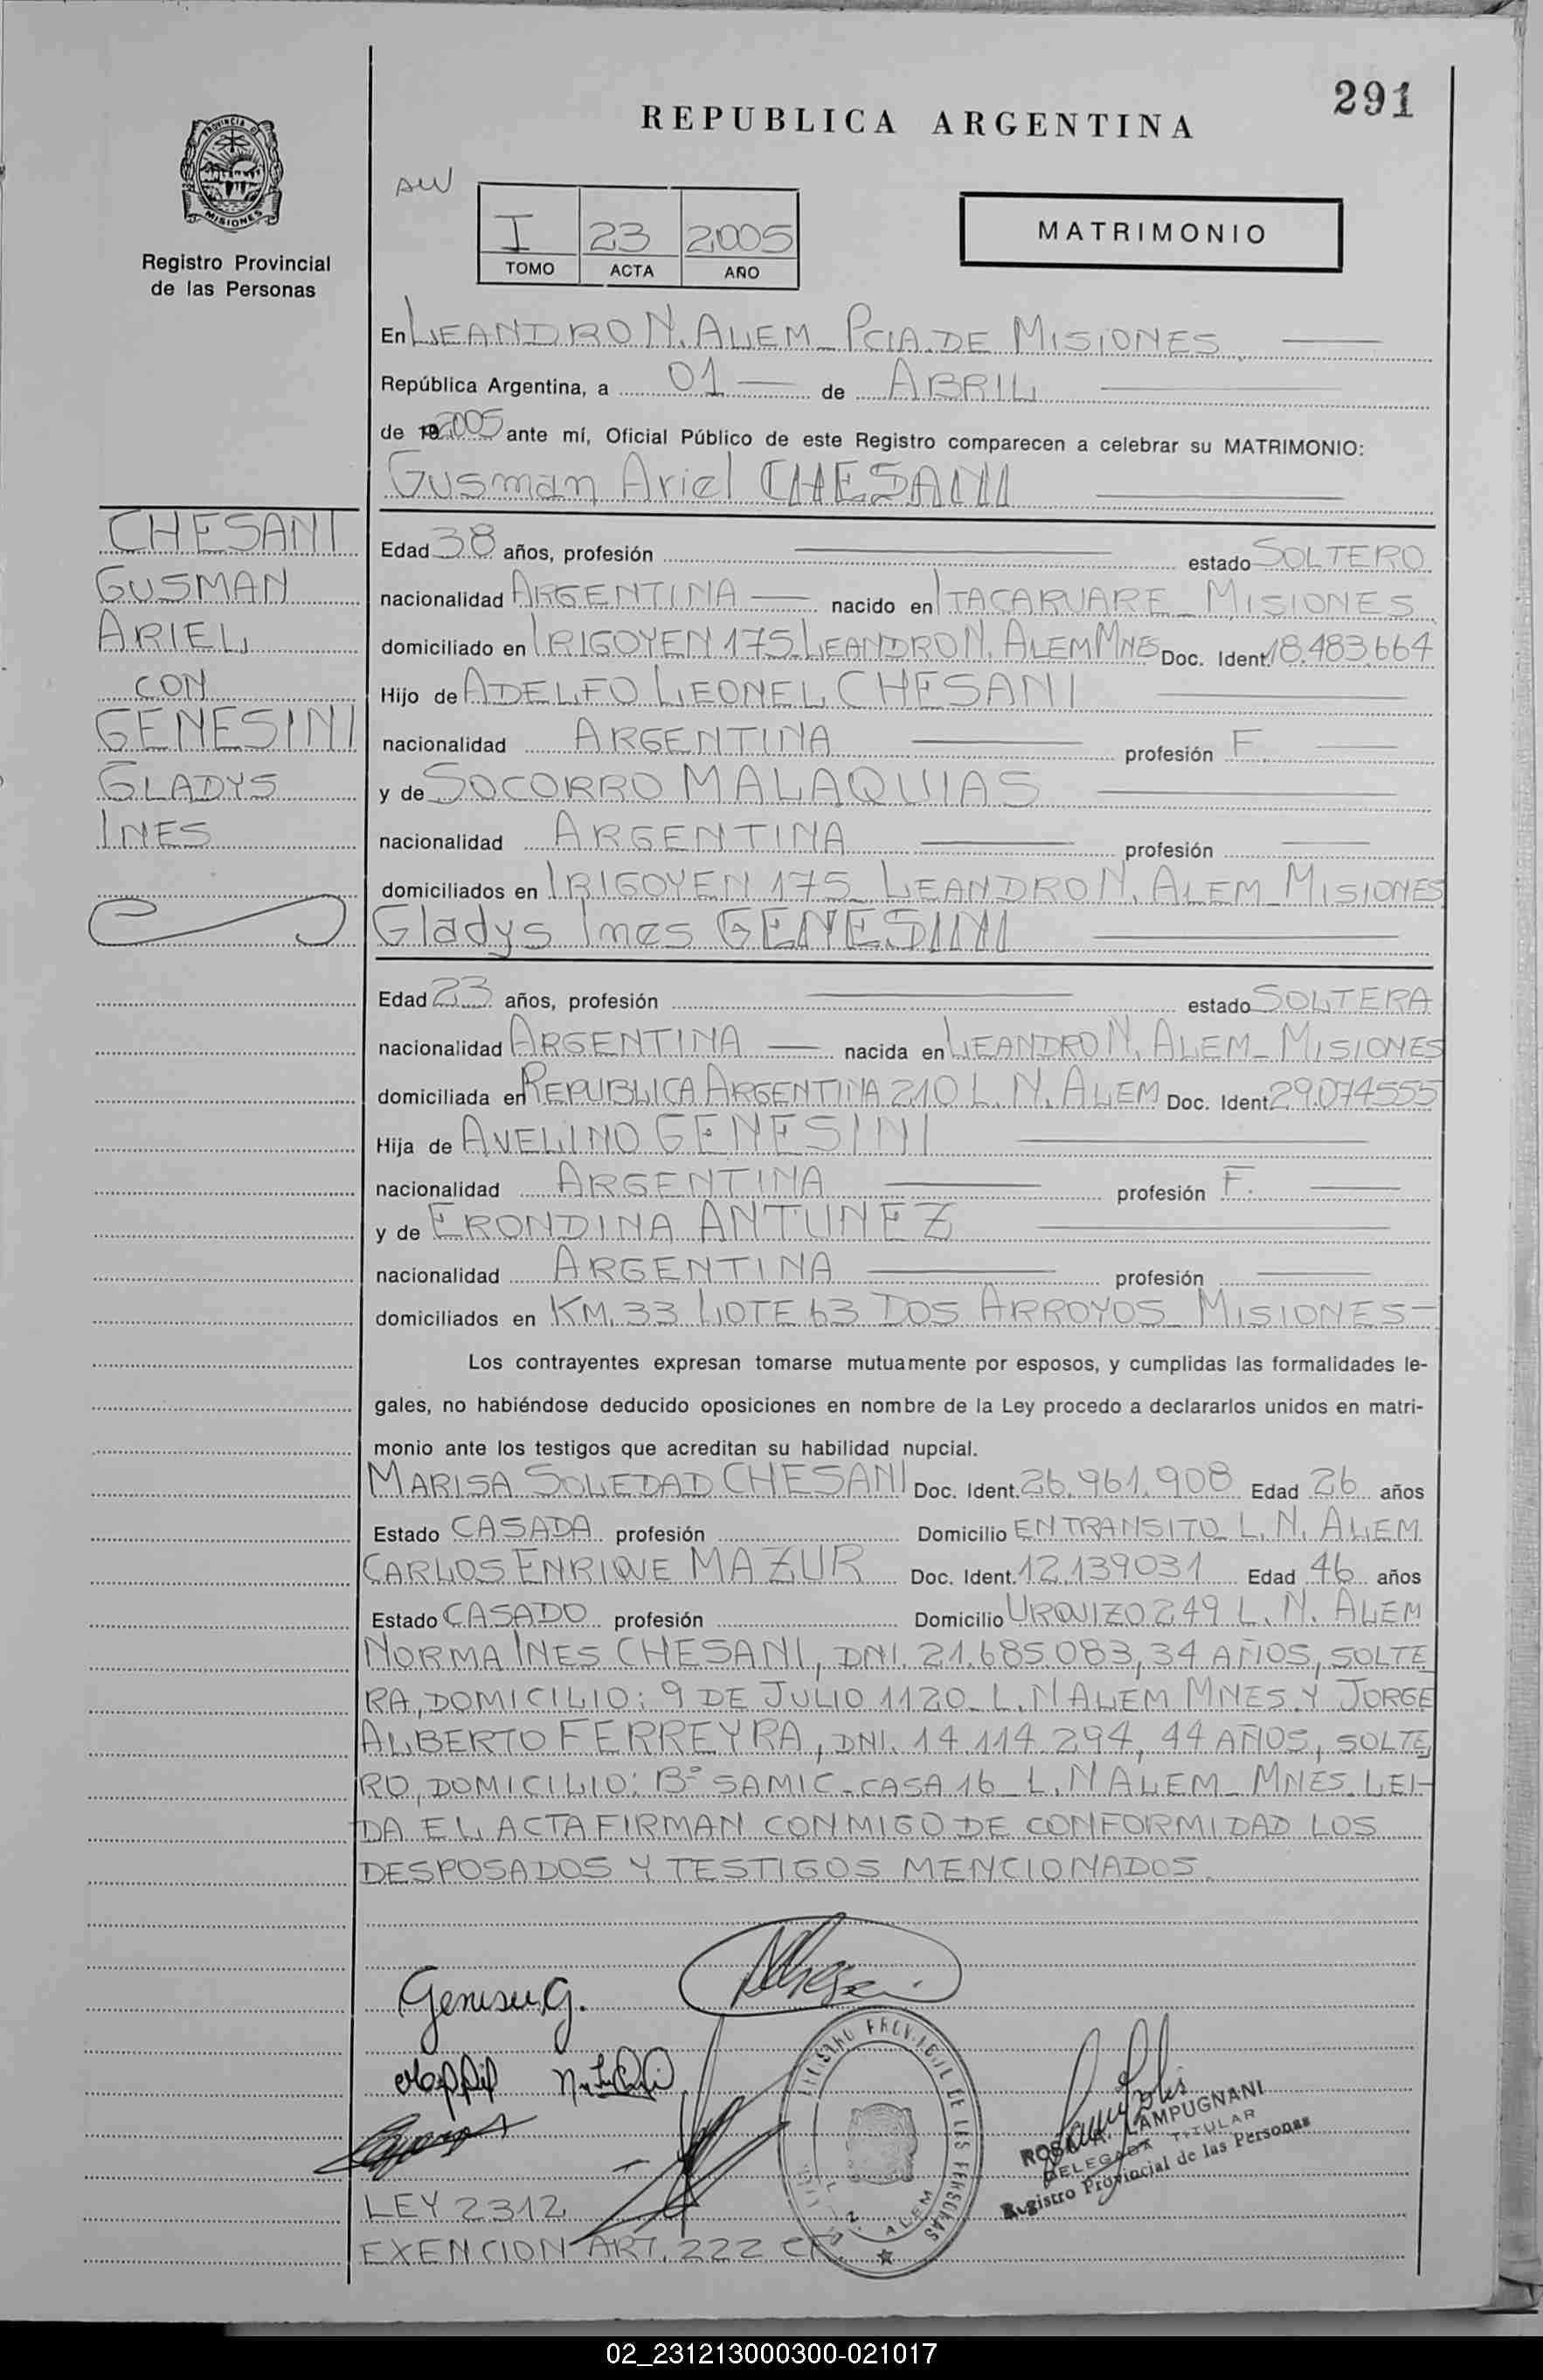 291
REPUBLICA ARGENTINA
PROVINCIA DE
MISIONES
Registro Provincial
de las Personas
AW
I 23 2005
TOMO ACTA AÑO
MATRIMONIO
En LEANDRO N. ALEM - PCIA. DE MISIONES
República Argentina, a 01 de ABRIL
de 19 2005 ante mí, Oficial Público de este Registro comparecen a celebrar su MATRIMONIO:
Gusman Ariel CHESANI
CHESANI
GUSMAN
ARIEL
CON
GENESINI
GLADYS
INES
Edad 38 años, profesión estado SOLTERO
nacionalidad ARGENTINA nacido en ITACARUARE - MISIONES
domiciliado en IRIGOYEN 175 - LEANDRO N. ALEM MNES Doc. Ident. 18.483.664
Hijo de ADELFO LEONEL CHESANI
nacionalidad ARGENTINA profesión F.
y de SOCORRO MALAQUIAS
nacionalidad ARGENTINA profesión
domiciliados en IRIGOYEN 175 - LEANDRO N. ALEM - MISIONES
Gladys Ines GENESINI
Edad 23 años, profesión estado SOLTERA
nacionalidad ARGENTINA nacida en LEANDRO N. ALEM - MISIONES
domiciliada en REPUBLICA ARGENTINA 210 L. N. ALEM Doc. Ident. 29.074555
Hija de AVELINO GENESINI
nacionalidad ARGENTINA profesión F.
y de ERONDINA ANTUNEZ
nacionalidad ARGENTINA profesión
domiciliados en KM. 33 LOTE 63 DOS ARROYOS - MISIONES -
Los contrayentes expresan tomarse mutuamente por esposos, y cumplidas las formalidades le-
gales, no habiéndose deducido oposiciones en nombre de la Ley procedo a declararlos unidos en matri-
monio ante los testigos que acreditan su habilidad nupcial.
MARISA SOLEDAD CHESANI Doc. Ident. 26.961.908 Edad 26 años
Estado CASADA profesión Domicilio EN TRANSITO L. N. ALEM
CARLOS ENRIQUE MAZUR Doc. Ident. 12.139031 Edad 46 años
Estado CASADO profesión Domicilio URQUIZO 249 L. N. ALEM
NORMA INES CHESANI, DNI. 21.685.083, 34 AÑOS, SOLTE
RA, DOMICILIO: 9 DE JULIO 1120 - L. N ALEM MNES Y JORGE
ALBERTO FERREYRA, DNI. 14.114.294, 44 AÑOS, SOLTE
RO, DOMICILIO: Bº SAMIC - CASA 16 - L. N ALEM - MNES. LEI-
DA EL ACTA FIRMAN CONMIGO DE CONFORMIDAD LOS
DESPOSADOS Y TESTIGOS MENCIONADOS.
REGISTRO PROVINCIAL DE LAS PERSONAS
ALEM
ROSA A. LAMPUGNANI
DELEGADA TITULAR
Registro Provincial de las Personas
LEY 2312
EXENCION ART. 222
02_231213000300-021017